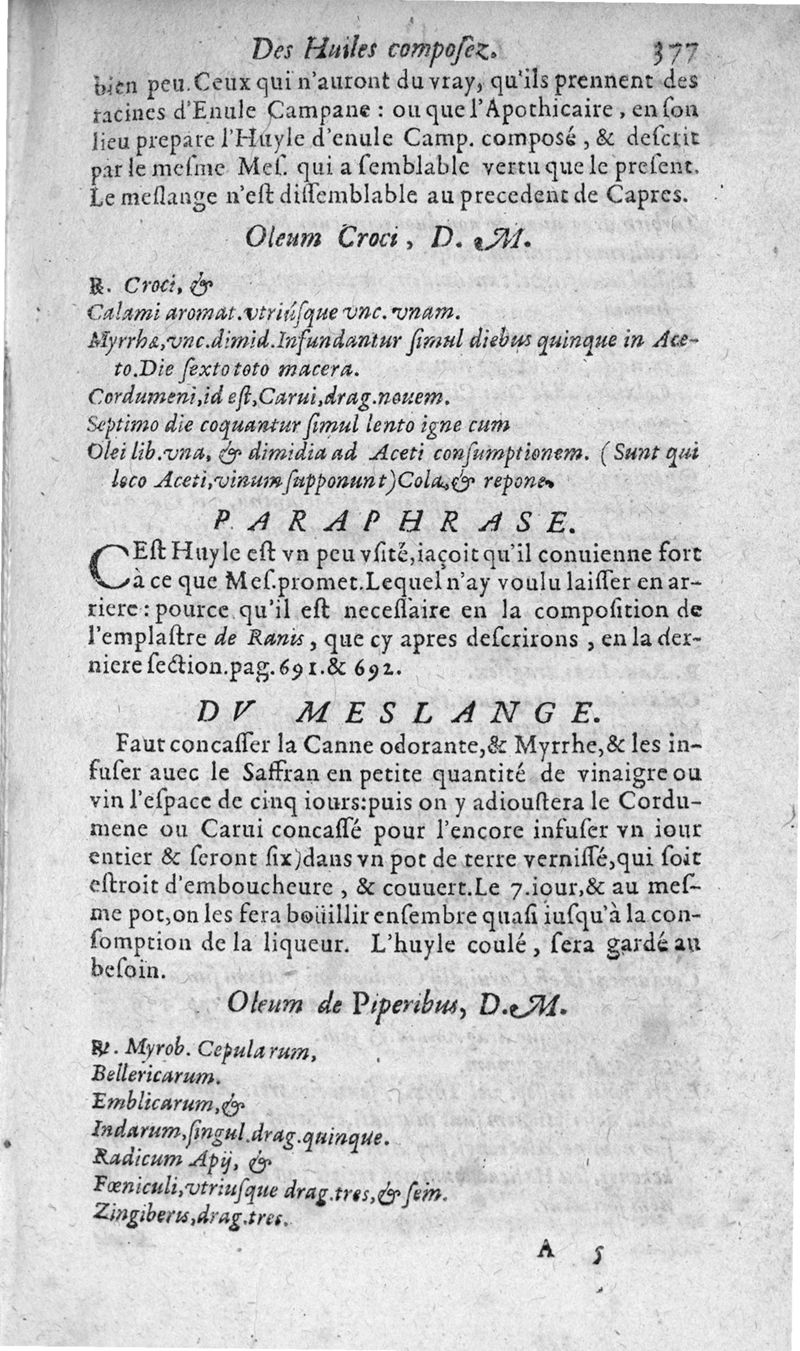 Des Huiles composez. 377
bien peu. Ceux qui n'auront du vray, qu'ils prennent des
racines d'Enule Campane : ou que l'Apothicaire, en son
lieu prepare l'Huyle d'enule Camp. composé, & descrit
par le mesme Mes. qui a semblable vertu que le present.
Le meslange n'est dissemblable au precedent de Capres.
Oleum Croci, D. M.
℞. Croci, &
Calami aromat. vtriúsque vnc. vnam.
Myrrhæ, vnc. dimid. Infundantur simul diebus quinque in Ace-
to. Die sexto toto macera.
Cordumeni, id est, Carui, drag. nouem.
Septimo die coquantur simul lento igne cum
Olei lib. vna, & dimidia ad Aceti consumptionem. (Sunt qui
loco Aceti, vinum supponunt) Cola, & repone.
PARAPHRASE.
CEst Huyle est vn peu vsité, iaçoit qu'il conuienne fort
à ce que Mes. promet. Lequel n'ay voulu laisser en ar-
riere : pource qu'il est necessaire en la composition de
l'emplastre de Ranis, que cy apres descrirons, en la der-
niere section. pag. 691. & 692.
DV MESLANGE.
Faut concasser la Canne odorante, & Myrrhe, & les in-
fuser auec le Saffran en petite quantité de vinaigre ou
vin l'espace de cinq iours: puis on y adioustera le Cordu-
mene ou Carui concassé pour l'encore infuser vn iour
entier & seront six) dans vn pot de terre vernissé, qui soit
estroit d'emboucheure, & couuert. Le 7. iour, & au mes-
me pot, on les fera boüillir ensembre quasi iusqu'à la con-
somption de la liqueur. L'huyle coulé, sera gardé au
besoin.
Oleum de Piperibus, D. M.
℞. Myrob. Cepularum,
Bellericarum.
Emblicarum, &
Indarum, singul. drag. quinque.
Radicum Apij, &
Fœniculi, vtriusque drag. tres, & sem.
Zingiberis, drag. tres.
A 5